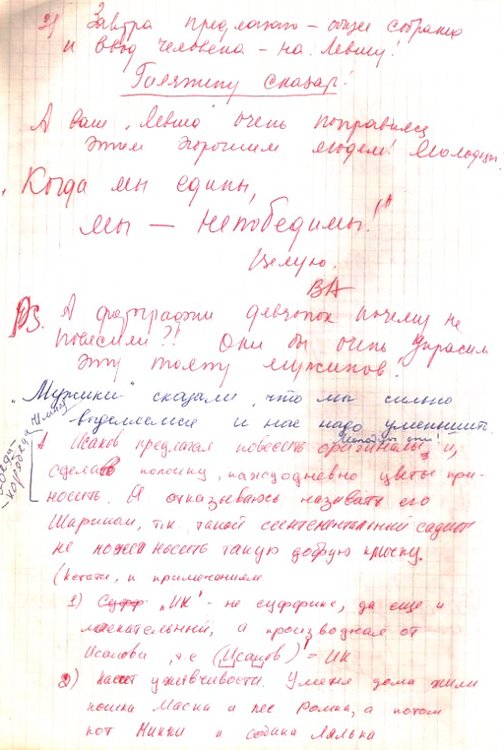 4) Завтра предлагаю - общее собрание
и ввод человека - на "Левшу"!
сказал!
А ваш "Левша" очень понравился
этим хорошим людям! Молодцы.
"Когда мы едины,
мы — непобедимы!"
Целую.
ВА
PS. А фотографии девчонок почему не
повесили?! Они бы очень украсили
эту толпу мужиков!
"Мужики" сказали, что мы сильно
выделяемся и нас надо уменьшить.
Исаков предлагал повесить оригиналы и,
сделать полочку, каждодневно цветы при-
носить. Я отказываюсь называть его
Шариком, т.к. такой сентиментальный садист
не может носить такую добрую кличку.
(Кстати, к примечаниям
1) "ИК" - не суффикс, да еще и
ласкательный, а производная от
Исакова, т.е. (Исаков) = ИК
2) Насчет уживчивости. У меня дома жили
кошка Маска и пес Ромка, а потом
кот Микки и собака Лялька